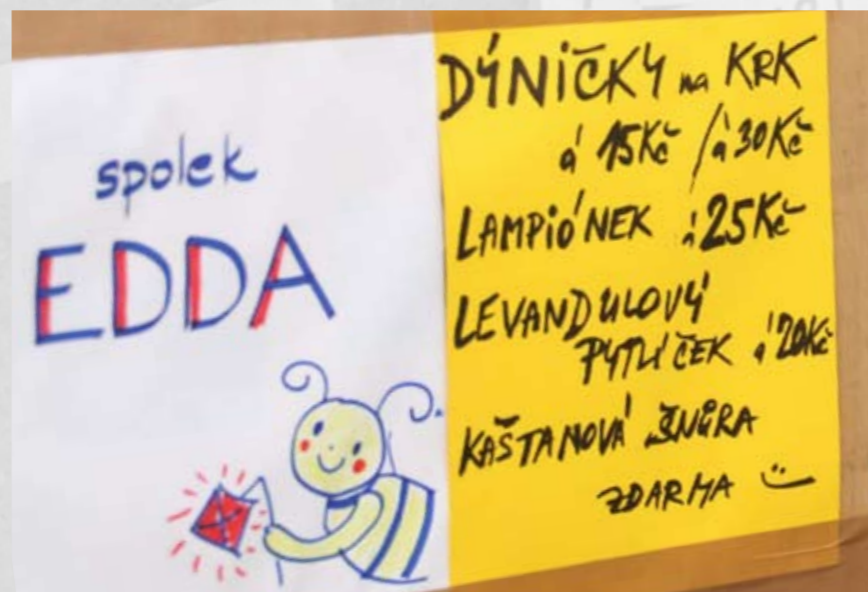 spolek
EDDA
DÝNIČKY na KRK
á 15Kč / á 30Kč
LAMPIÓNEK á 25Kč
LEVANDULOVÝ
PYTLÍČEK á 20Kč
KAŠTANOVÁ ŠŇŮRA
ZDARMA